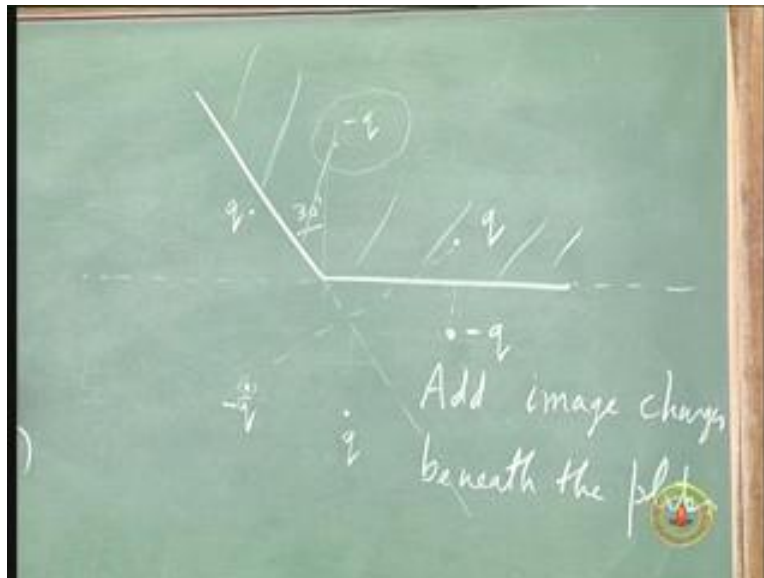 -q
q
30°
q
-q
-q
q
Add image charges
beneath the